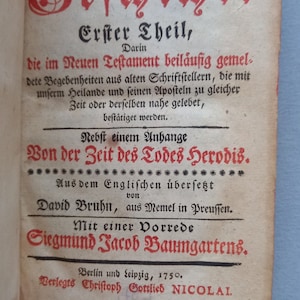 Erster Theil,
Darin
die im Neuen Testament beiläufig gemel-
dete Begebenheiten aus alten Schriftstellern, die mit
unserm Heilande und seinen Aposteln zu gleicher
Zeit oder derselben nahe gelebet,
bestätiget werden.
Nebst einem Anhange
Von der Zeit des Todes Herodis.
Aus dem Englischen übersetzt
von
David Bruhn, aus Memel in Preussen.
Mit einer Vorrede
Siegmund Jacob Baumgartens.
Berlin und Leipzig, 1750.
Verlegts Christoph Gottlieb NICOLAI.